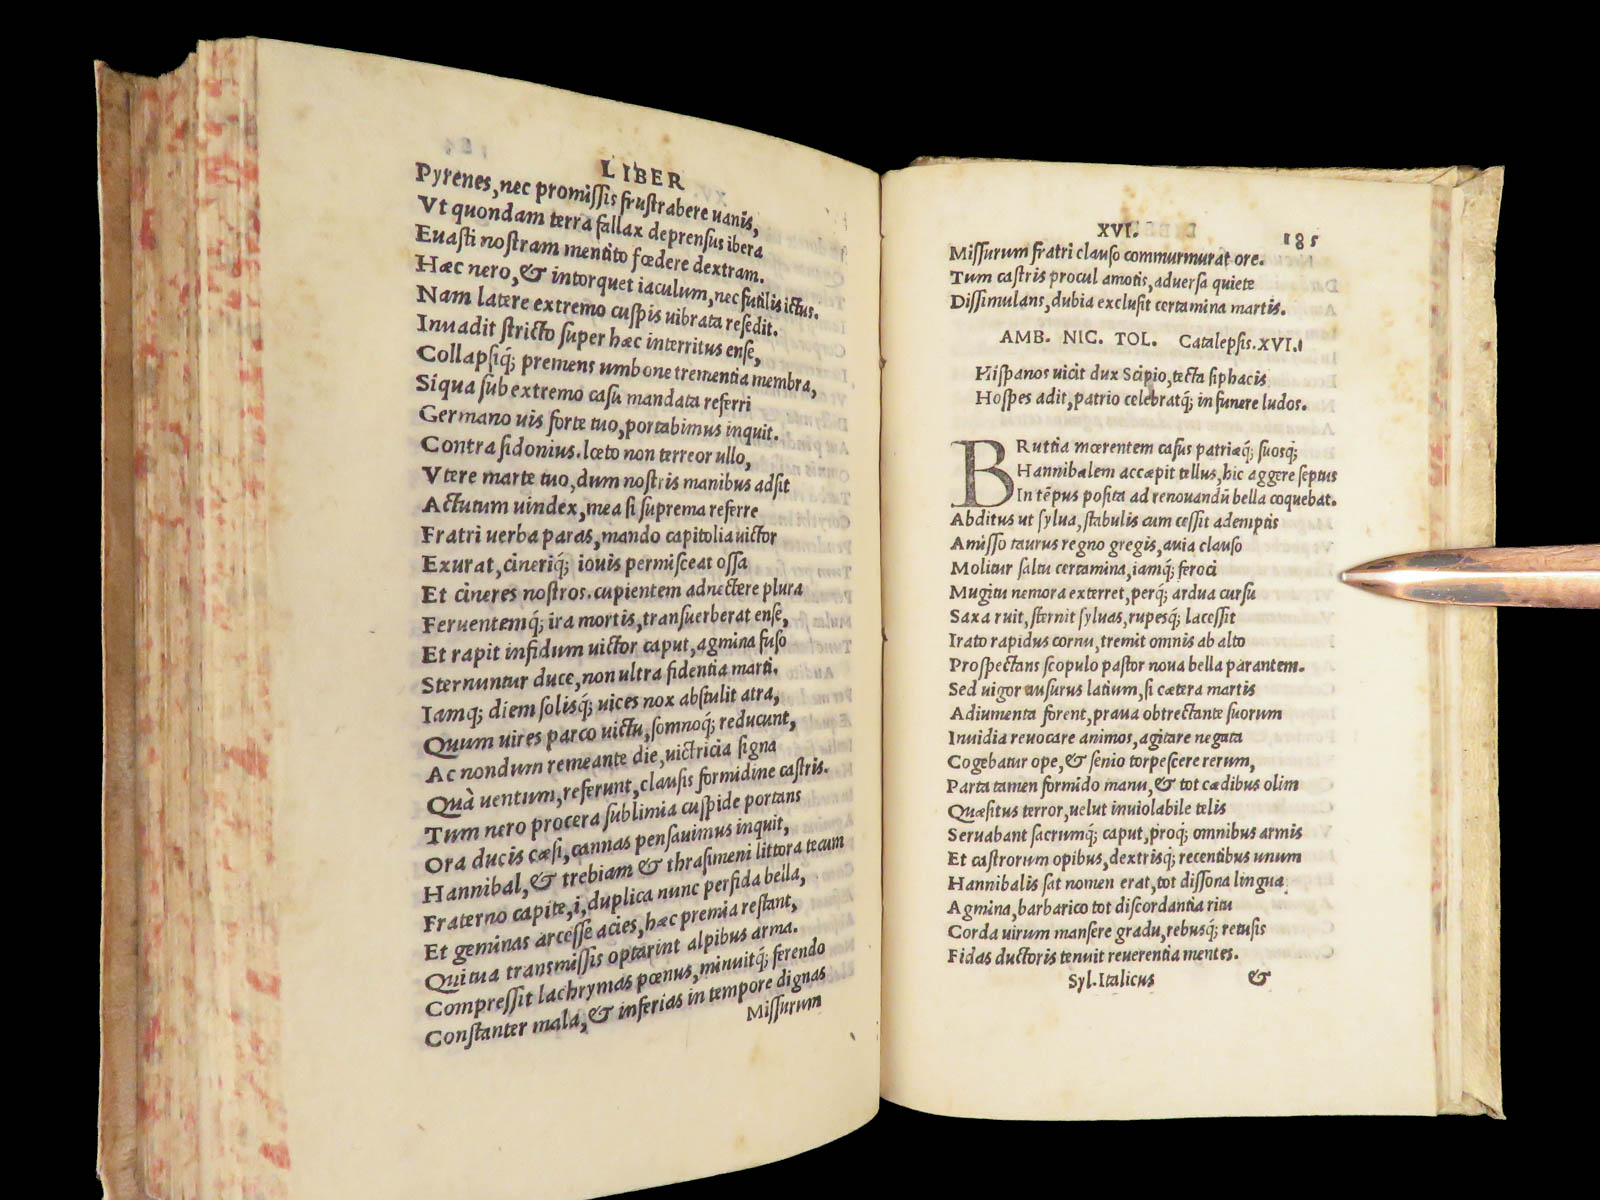 LIBER
Pyrenes, nec promissis frustrabere uanis,
Vt quondam terra fallax deprensus ibera
Euasti nostram mentito fœdere dextram.
Hæc nero, & intorquet iaculum, nec futilis ictus.
Nam latere extremo cuspis uibrata resedit.
Inuadit stricto super hæc interritus ense,
Collapsiq́; premens umbone trementia membra,
Siqua sub extremo casu mandata referri
Germano uis forte tuo, portabimus inquit.
Contra sidonius. lœto non terreor ullo,
Vtere marte tuo, dum nostris manibus adsit
Actutum uindex, mea si suprema referre
Fratri uerba paras, mando capitolia uictor
Exurat, cineriq́; iouis permisceat ossa
Et cineres nostros. cupientem adnectere plura
Feruentemq́; ira mortis, transuerberat ense,
Et rapit infidum uictor caput, agmina fuso
Sternuntur duce, non ultra fidentia marti.
Iamq; diem solisq́; uices nox abstulit atra,
Quum uires parco uictu, somnoq́; reducunt,
Ac nondum remeante die, uictricia signa
Quà uentum, referunt, clausis formidine castris.
Tum nero procera sublimia cuspide portans
Ora ducis cæsi, cannas pensauimus inquit,
Hannibal, & trebiam & thrasimeni littora tecum
Fraterno capite, i, duplica nunc perfida bella,
Et geminas arcesse acies, hæc premia restant,
Qui tua transmissis optarint alpibus arma.
Compressit lachrymas pœnus, minuitq́; ferendo
Constanter mala, & inferias in tempore dignas
Missurum
XVI. 185
Missurum fratri clauso commurmurat ore.
Tum castris procul amotis, aduersa quiete
Dissimulans, dubia exclusit certamina martis.
AMB. NIC. TOL. Catalepsis. XVI.
Hispanos uicit dux Scipio, tecta siphacis
Hospes adit, patrio celebratq́; in funere ludos.
BRuttia mœrentem casus patriæq́; suosq́;
Hannibalem accæpit tellus, hic aggere septus
In tēpus posita ad renouandū bella coquebat.
Abditus ut sylua, stabulis cum cessit ademptis
Amisso taurus regno gregis, auia clauso
Molitur saltu certamina, iamq́; feroci
Mugitu nemora exterret, perq́; ardua cursu
Saxa ruit, sternit syluas, rupesq́; lacessit
Irato rapidus cornu, tremit omnis ab alto
Prospectans scopulo pastor noua bella parantem.
Sed uigor ausurus latium, si cætera martis
Adiumenta forent, praua obtrectante suorum
Inuidia reuocare animos, agitare negata
Cogebatur ope, & senio torpescere rerum,
Parta tamen formido manu, & tot cædibus olim
Quæsitus terror, uelut inuiolabile telis
Seruabant sacrumq́; caput, proq́; omnibus armis
Et castrorum opibus, dextrisq́; recentibus unum
Hannibalis sat nomen erat, tot dissona lingua
Agmina, barbarico tot discordantia ritu
Corda uirum mansere gradu, rebusq́; retusis
Fidas ductoris tenuit reuerentia mentes.
Syl. Italicus &